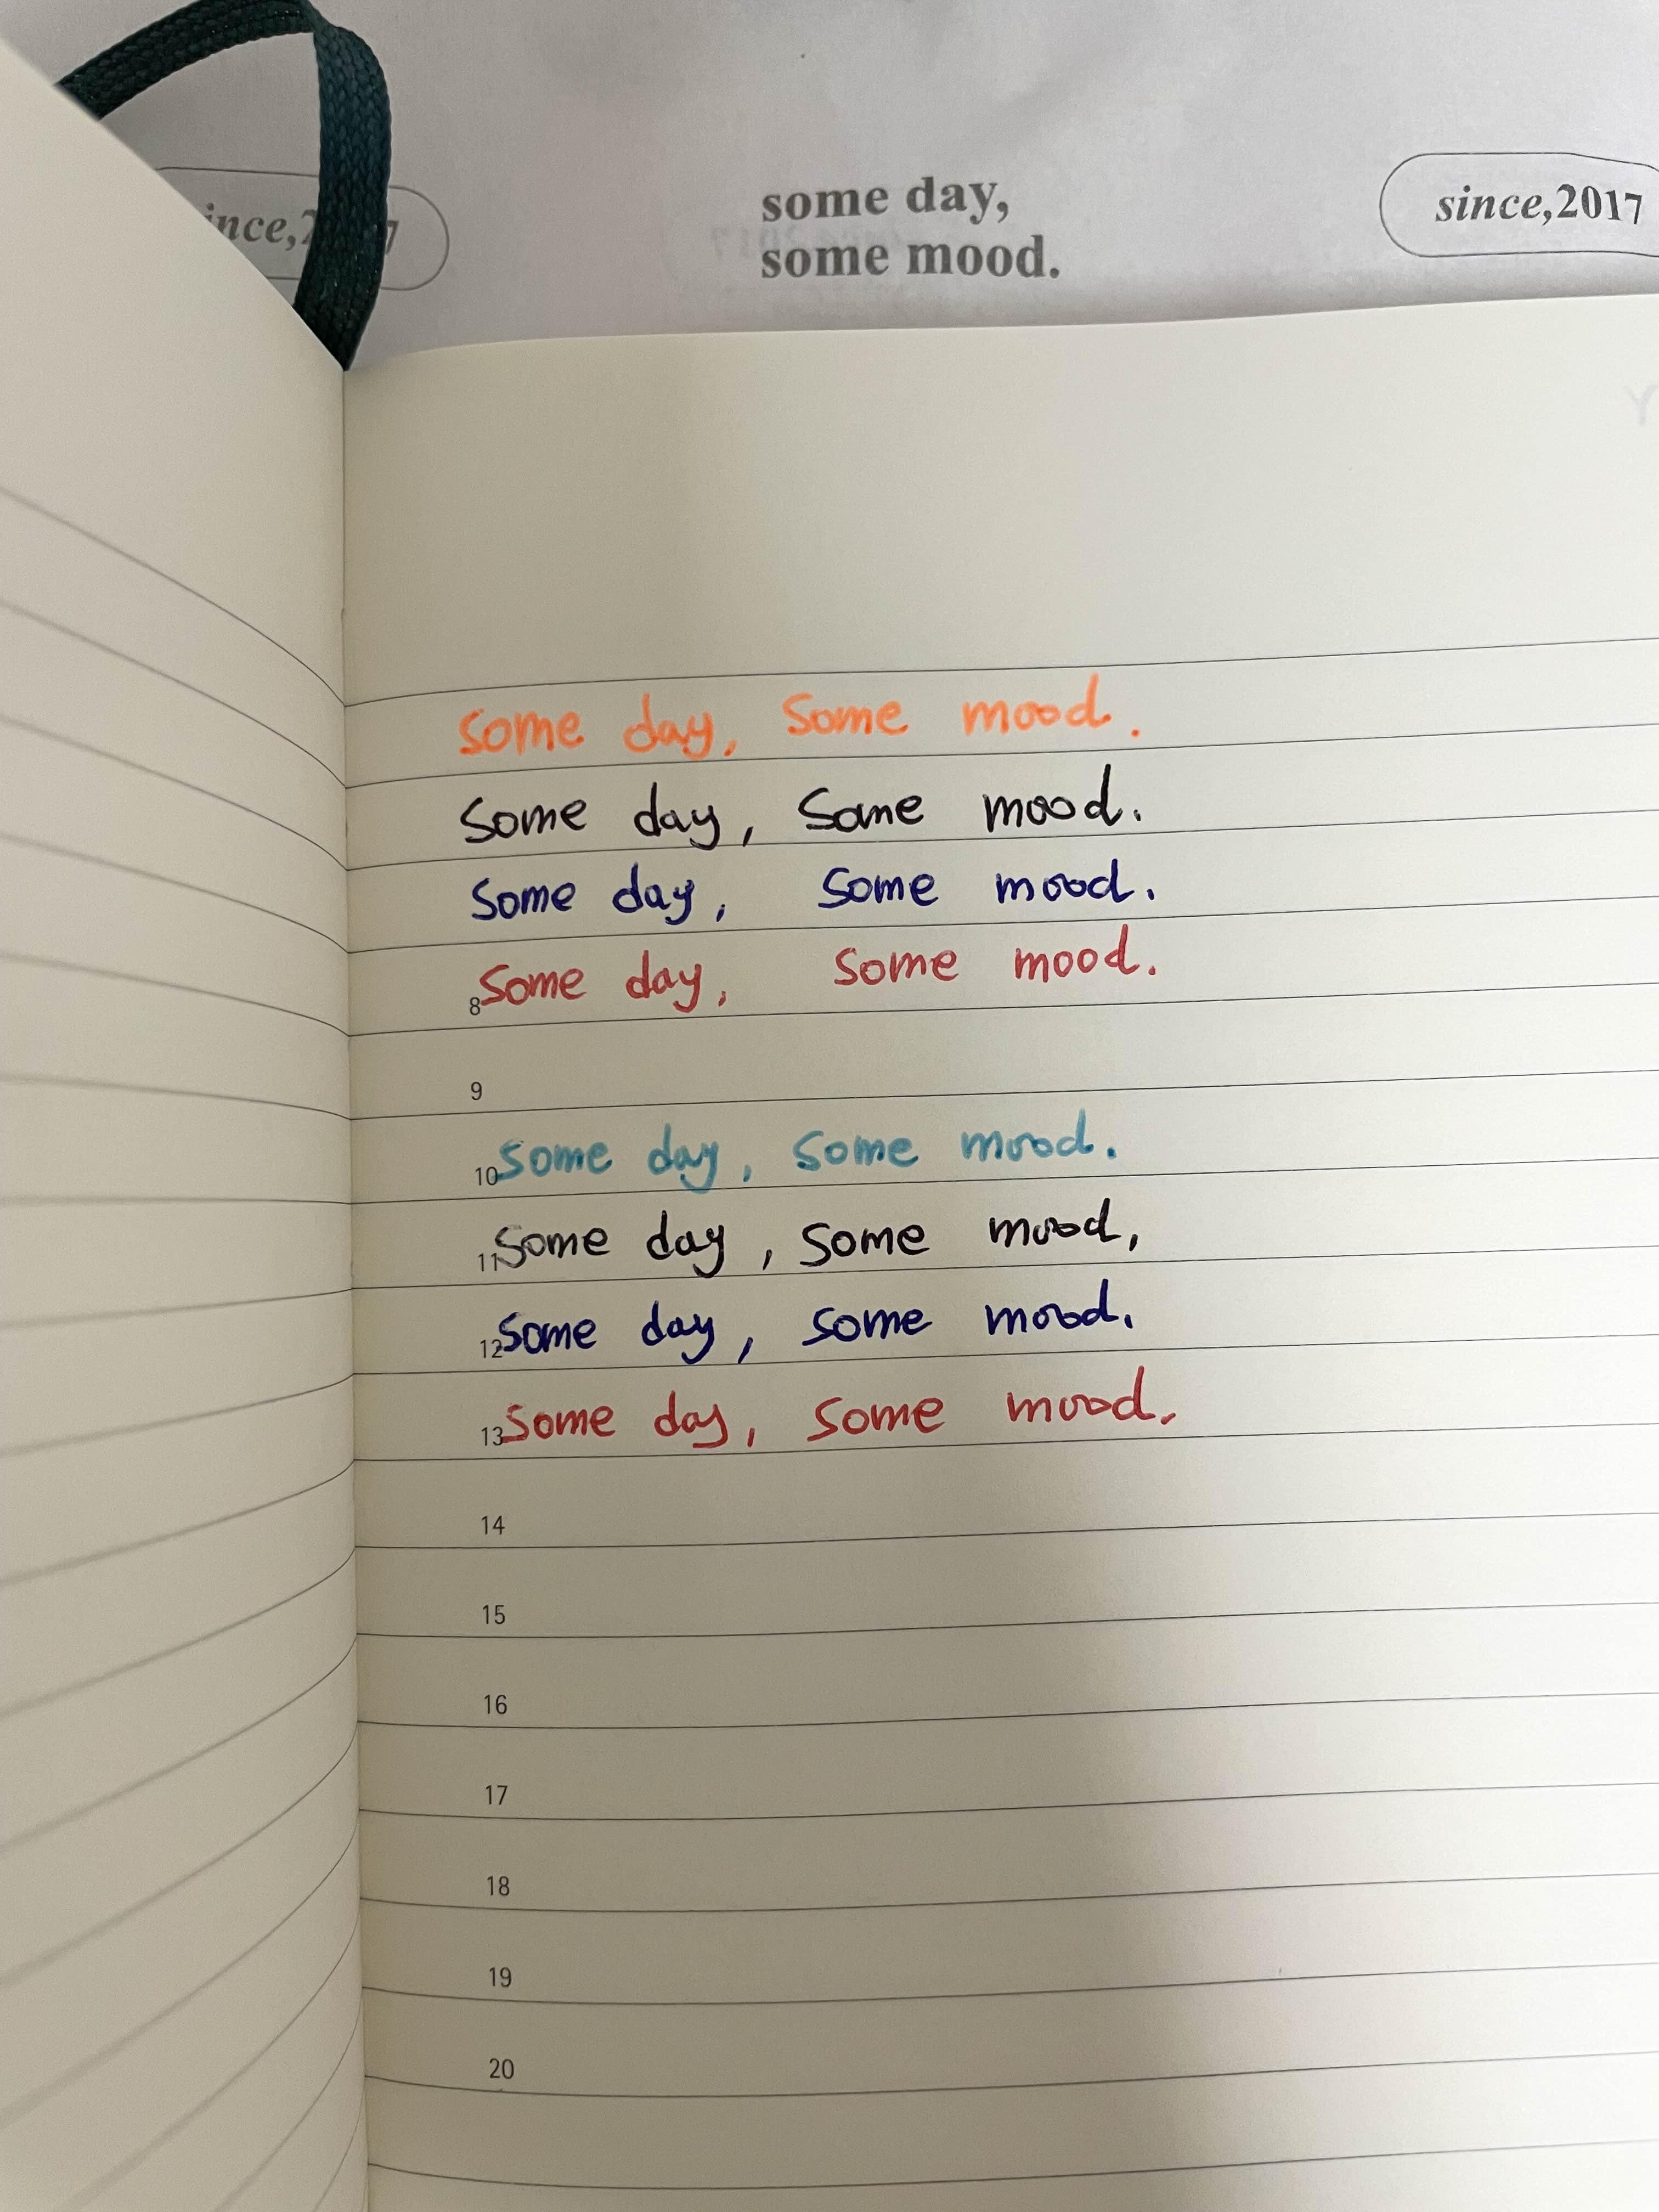 since,2017
some day,
some mood.
since,2017
some day, some mood.
some day, some mood.
some day, some mood.
8 some day, some mood.
9
10 some day, some mood.
11 some day, some mood,
12 some day, some mood.
13 some day, some mood.
14
15
16
17
18
19
20